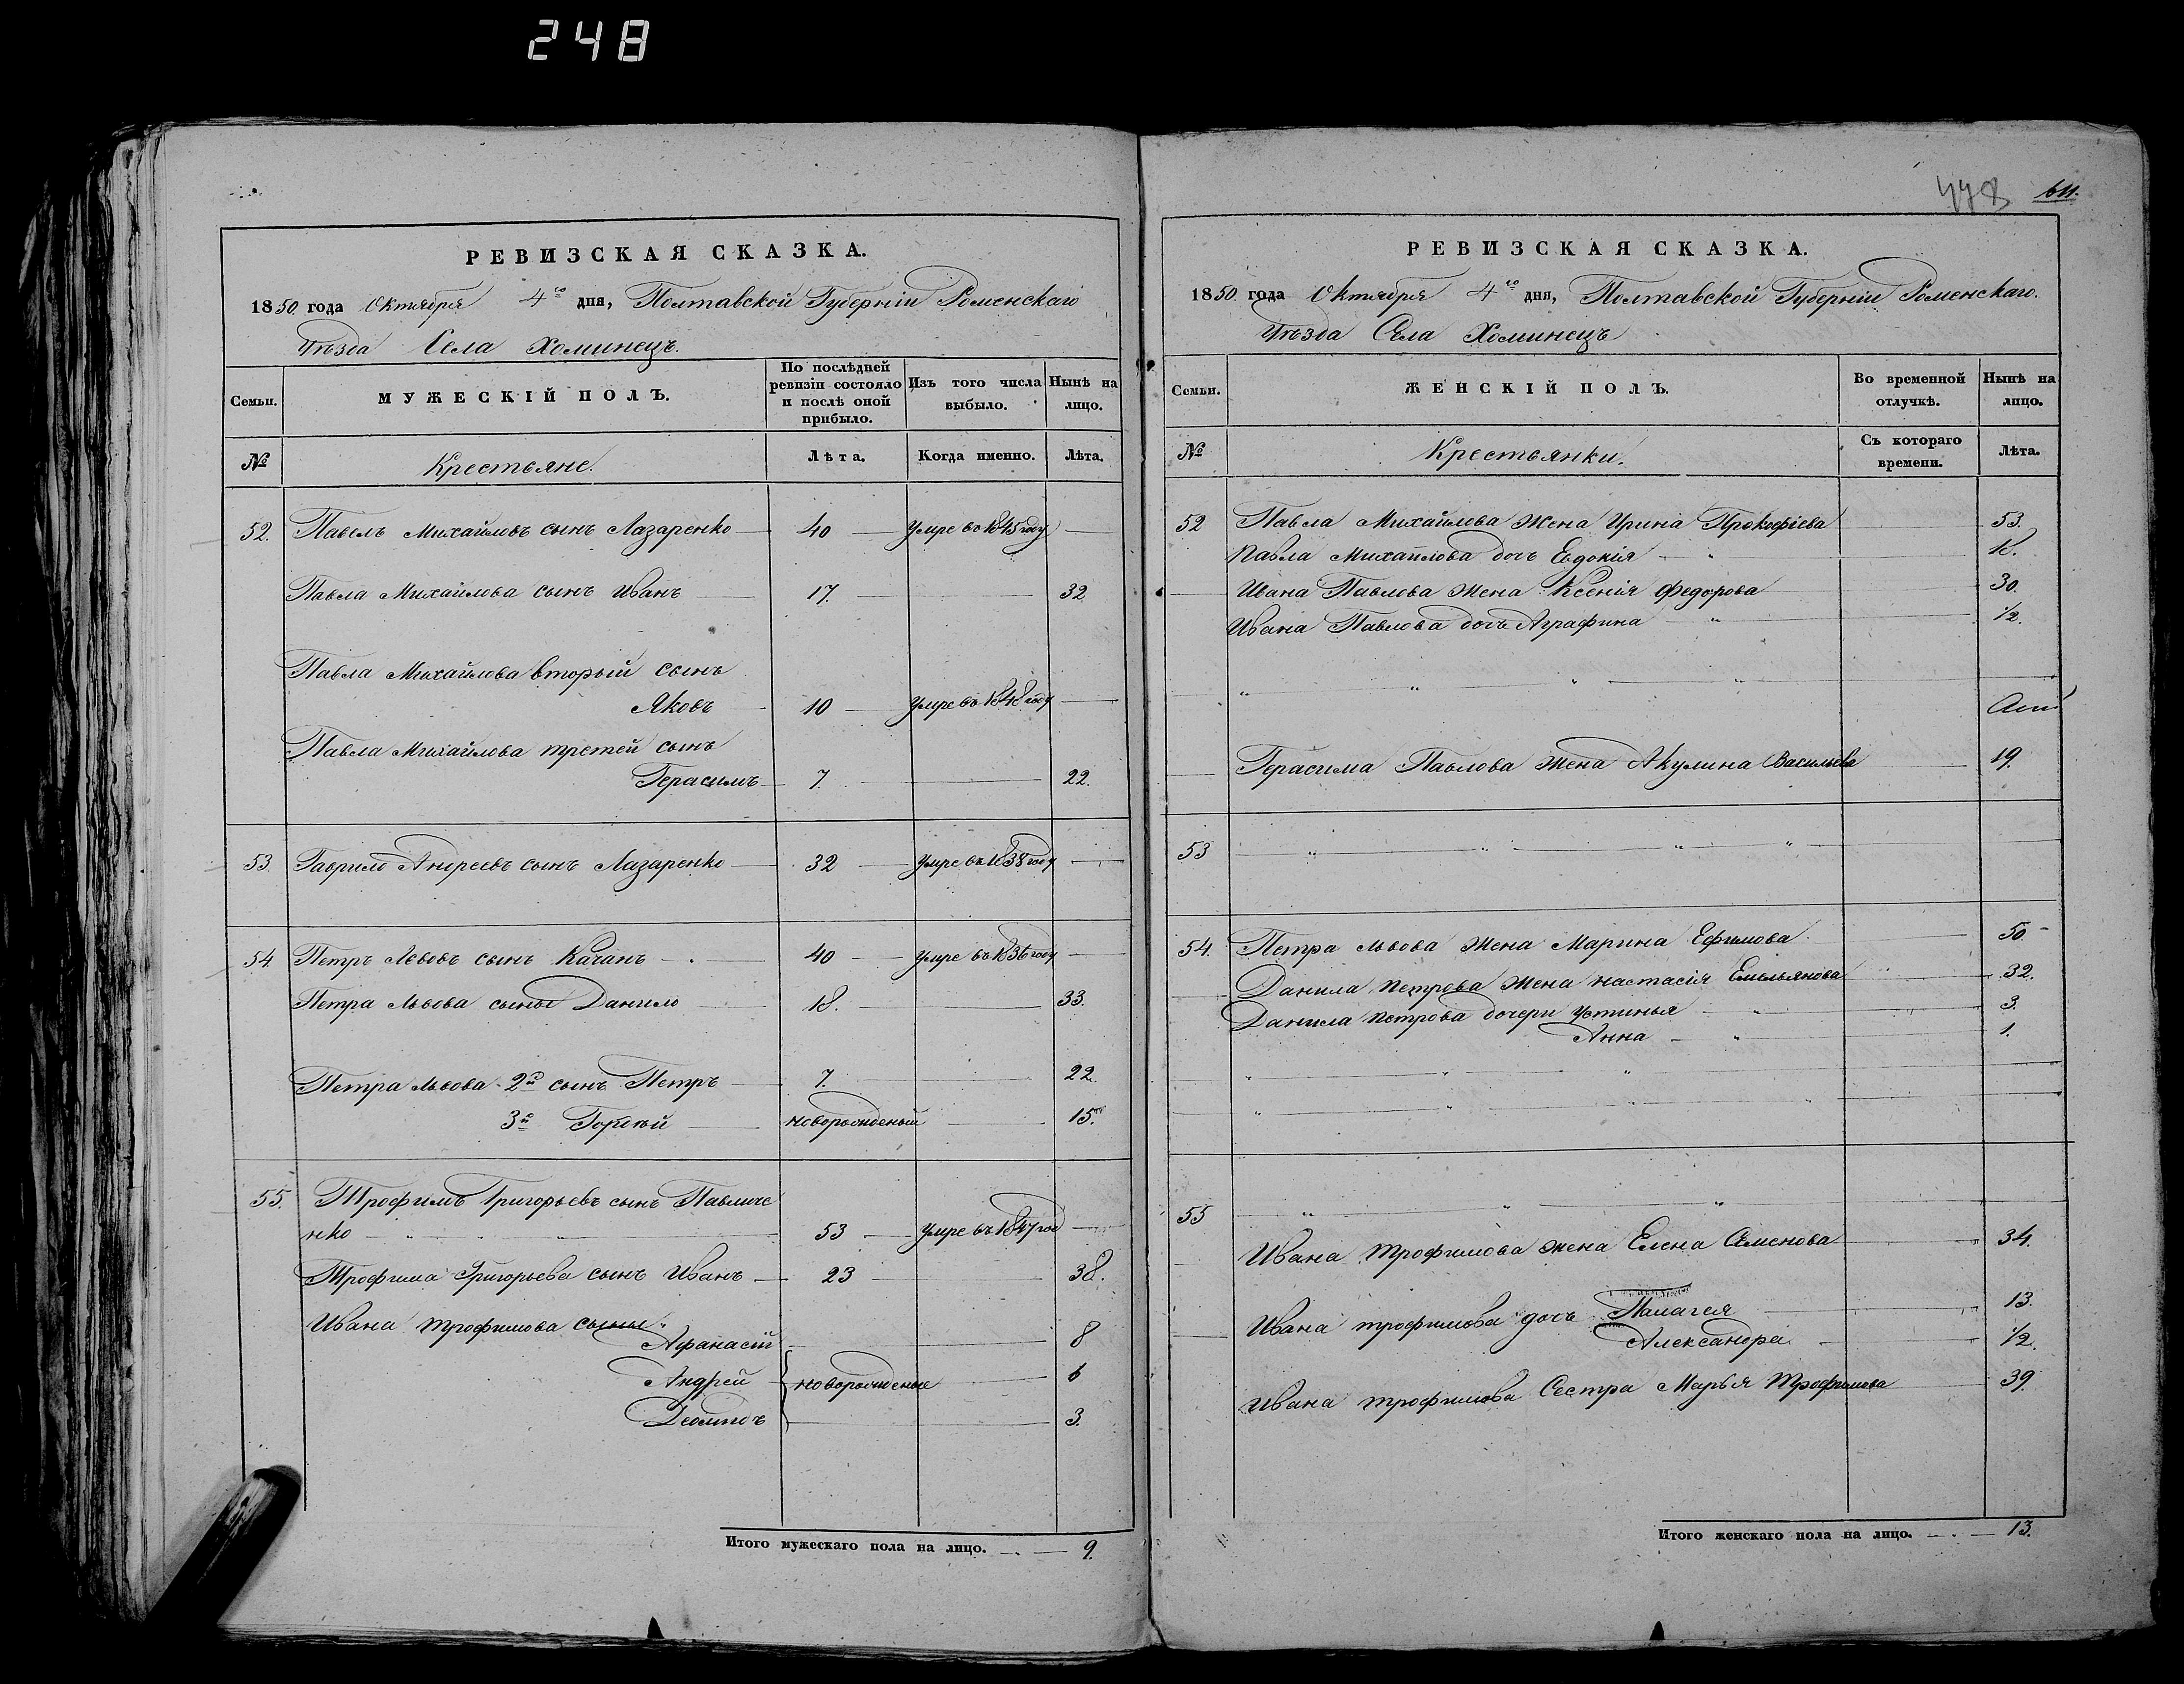 248
РЕВИЗСКАЯ СКАЗКА.
1850 года Октября 4го дня, Полтавской Губерніи Роменскаго
Уѣзда Села Хоминецъ.
Семьи.
МУЖЕСКІЙ ПОЛЪ.
По послѣдней ревизіи состояло и послѣ оной прибыло.
Изъ того числа выбыло.
Нынѣ на лицо.
№
Крестьяне.
Лѣта.
Когда именно.
Лѣта.
52. Павелъ Михайловъ сынъ Лазаренко 40 Умре въ 1845 году
Павла Михайлова сынъ Иванъ 17. 32
Павла Михайлова вторый сынъ
Яковъ 10 Умре въ 1848 году
Павла Михайлова третей сынъ
Герасимъ 7. 22.
53. Гаврило Андреевъ сынъ Лазаренко 32 Умре въ 1838 году
54. Петръ Львовъ сынъ Качанъ 40 Умре въ 1836 году
Петра Львова сыны Данило 18. 33.
Петра Львова 2й сынъ Петръ 7. 22.
3й новорожденый 15.
55. Трофимъ Григорьевъ сынъ Павличе
нко 53 Умре въ 1847 год
Трофима Григорьева сынъ Иванъ 23 38.
Ивана Трофимова сыны
Афанасій 8
Андрей новорожденые 6
3.
Итого мужескаго пола на лицо. 9.
478 611.
РЕВИЗСКАЯ СКАЗКА.
1850 года Октября 4го дня, Полтавской Губерніи Роменскаго.
Уѣзда Села Хоминецъ
Семьи.
ЖЕНСКІЙ ПОЛЪ.
Во временной отлучкѣ.
Нынѣ на лицо.
№
Крестьянки.
Съ котораго времени.
Лѣта.
52 Павла Михайлова жена Ирина Прокофіева 53.
Павла Михайлова дочь Евдокія 18.
Ивана Павлова жена Ксенія Федорова 30.
Ивана Павлова дочь Аграфина 1/2.
Герасима Павлова жена Акулина Васильева 19.
53
54. Петра Львова жена Марина Ефимова 50
Данила Петрова жена Настасія Емельянова 32.
Данила Петрова дочери Устинья 3.
Анна 1.
55
Ивана Трофимова жена Елена Семенова 34.
Ивана Трофимова дочь Палагея 13.
Александра 1/2.
Ивана Трофимова Сестра Марья Трофимова 39.
Итого женскаго пола на лицо. 13.